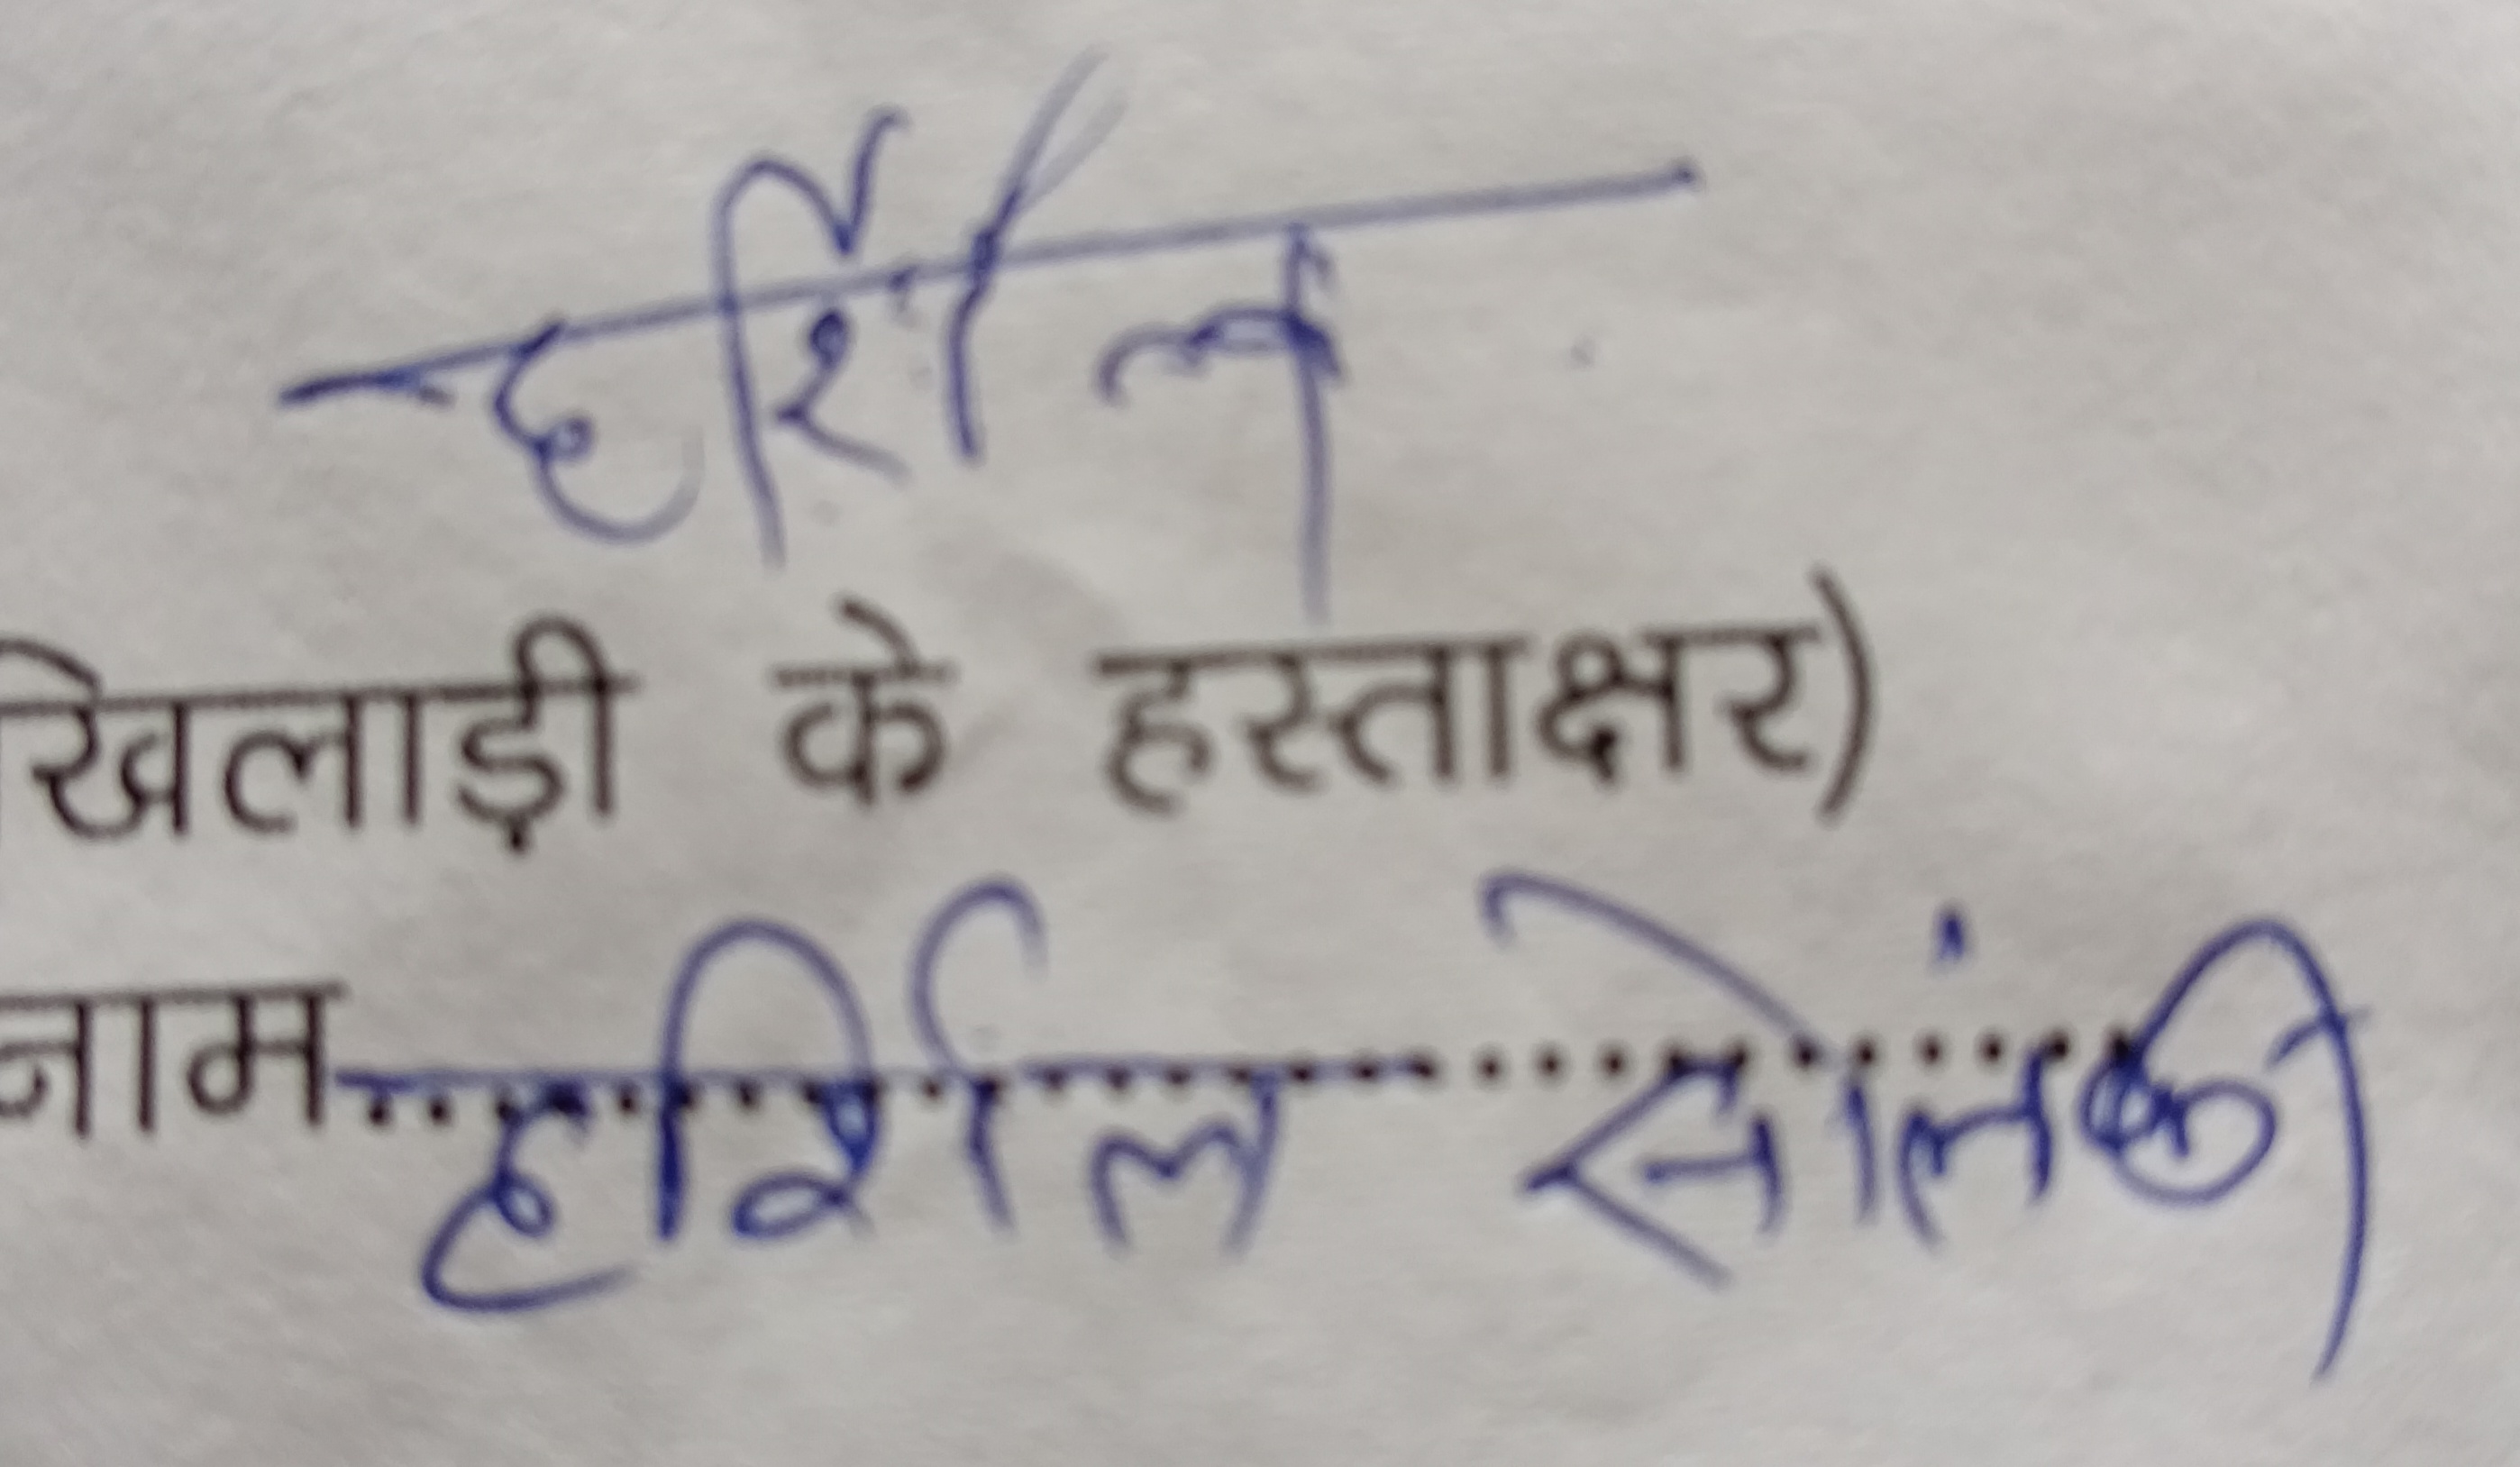 हर्शिल
खिलाड़ी के हस्ताक्षर)
नाम........हर्शिल सोलंकी